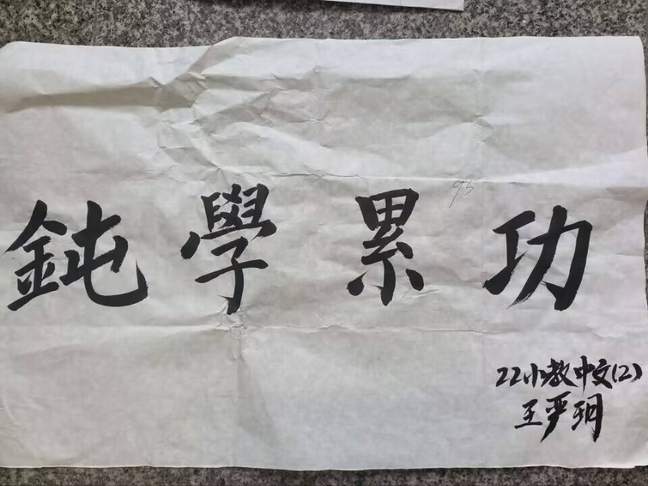 鈍學累功
95
22小教中文(2)
王严玥